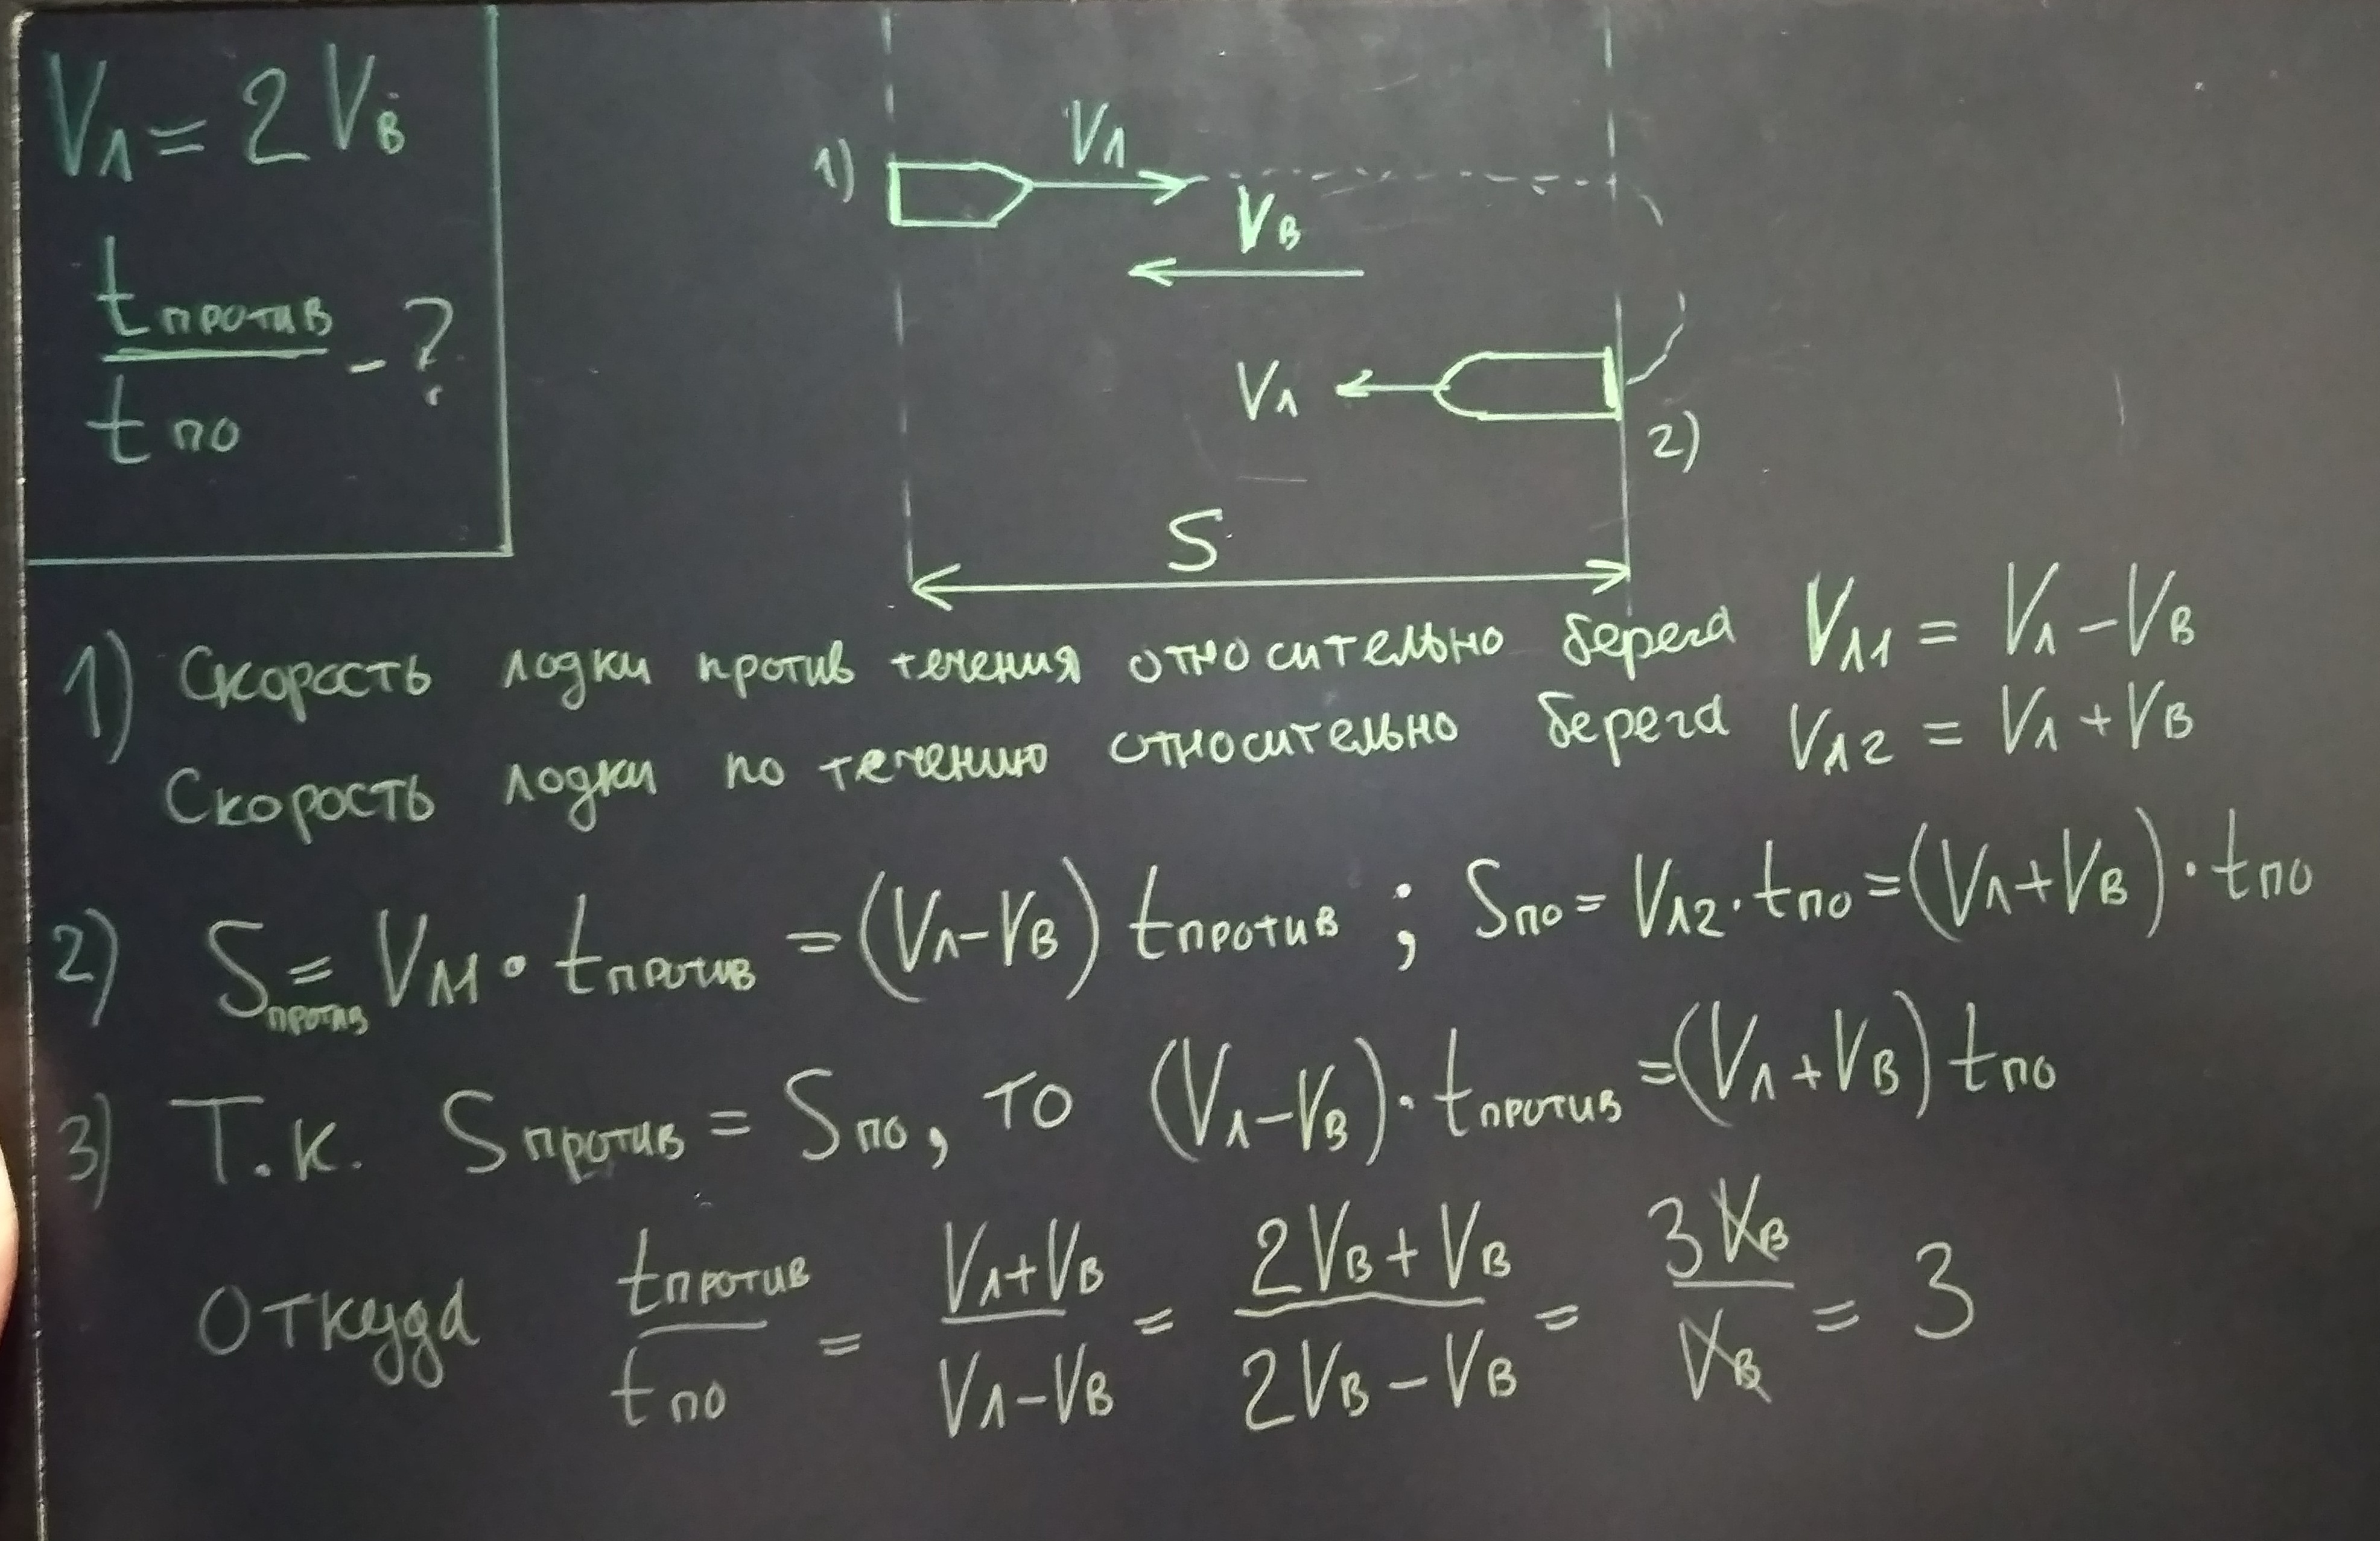 Vл = 2 Vв
tпротив / tпо - ?
1) Vл
Vв
Vл
2)
S
1) Скорость лодки против течения относительно берега Vл1 = Vл - Vв
Скорость лодки по течению относительно берега Vл2 = Vл + Vв
2) Sпротив = Vл1 • tпротив = (Vл - Vв) tпротив ; Sпо = Vл2 · tпо = (Vл + Vв) · tпо
3) Т.к. Sпротив = Sпо, то (Vл - Vв) · tпротив = (Vл + Vв) tпо
Откуда tпротив / tпо = Vл + Vв / Vл - Vв = 2Vв + Vв / 2Vв - Vв = 3Vв / Vв = 3